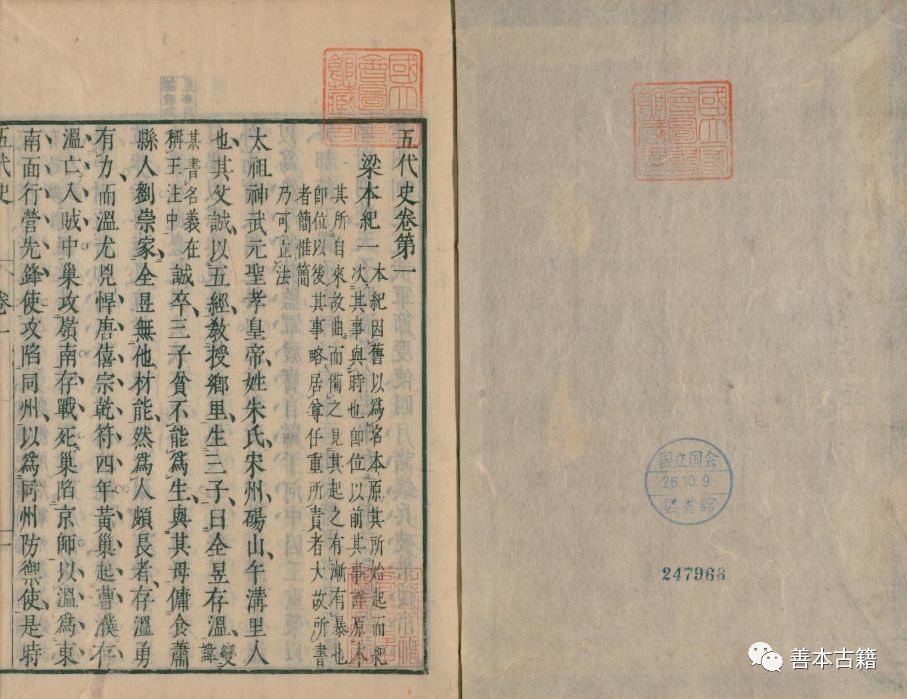 國立國會圖書館藏書
國立國會圖書館藏書
国立国会
26.10.9
図書館
247968
五代史卷第一
梁本紀一
本紀因舊以爲名本原其所始起而紀
次其事與時也即位以前其事詳原本
其所自來故曲而備之見其起之有漸有暴也
即位以後其事略居尊任重所責者大故所書
者簡惟簡
乃可立法
太祖神武元聖孝皇帝姓朱氏宋州碭山午溝里人
也其父誠以五經敎授鄉里生三子曰全昱存溫變諱
某書名義在
稱王注中
誠卒三子貧不能爲生與其母傭食蕭
縣人劉崇家全昱無他材能然爲人頗長者存溫勇
有力而溫尤兇悍唐僖宗乾符四年黃巢起曹濮存
溫亡入賊中巢攻嶺南存戰死巢陷京師以溫爲東
南面行營先鋒使攻陷同州以爲同州防禦使是時
五代史 卷一
善本古籍